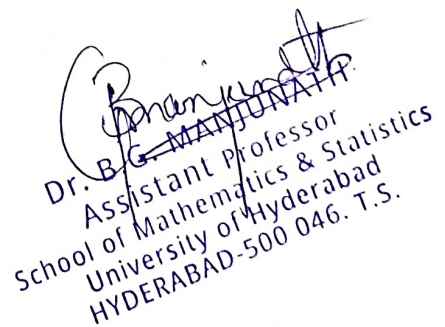 Bmanjunath
Dr. B.G. MANJUNATH
Assistant Professor
School of Mathematics & Statistics
University of Hyderabad
HYDERABAD-500 046. T.S.